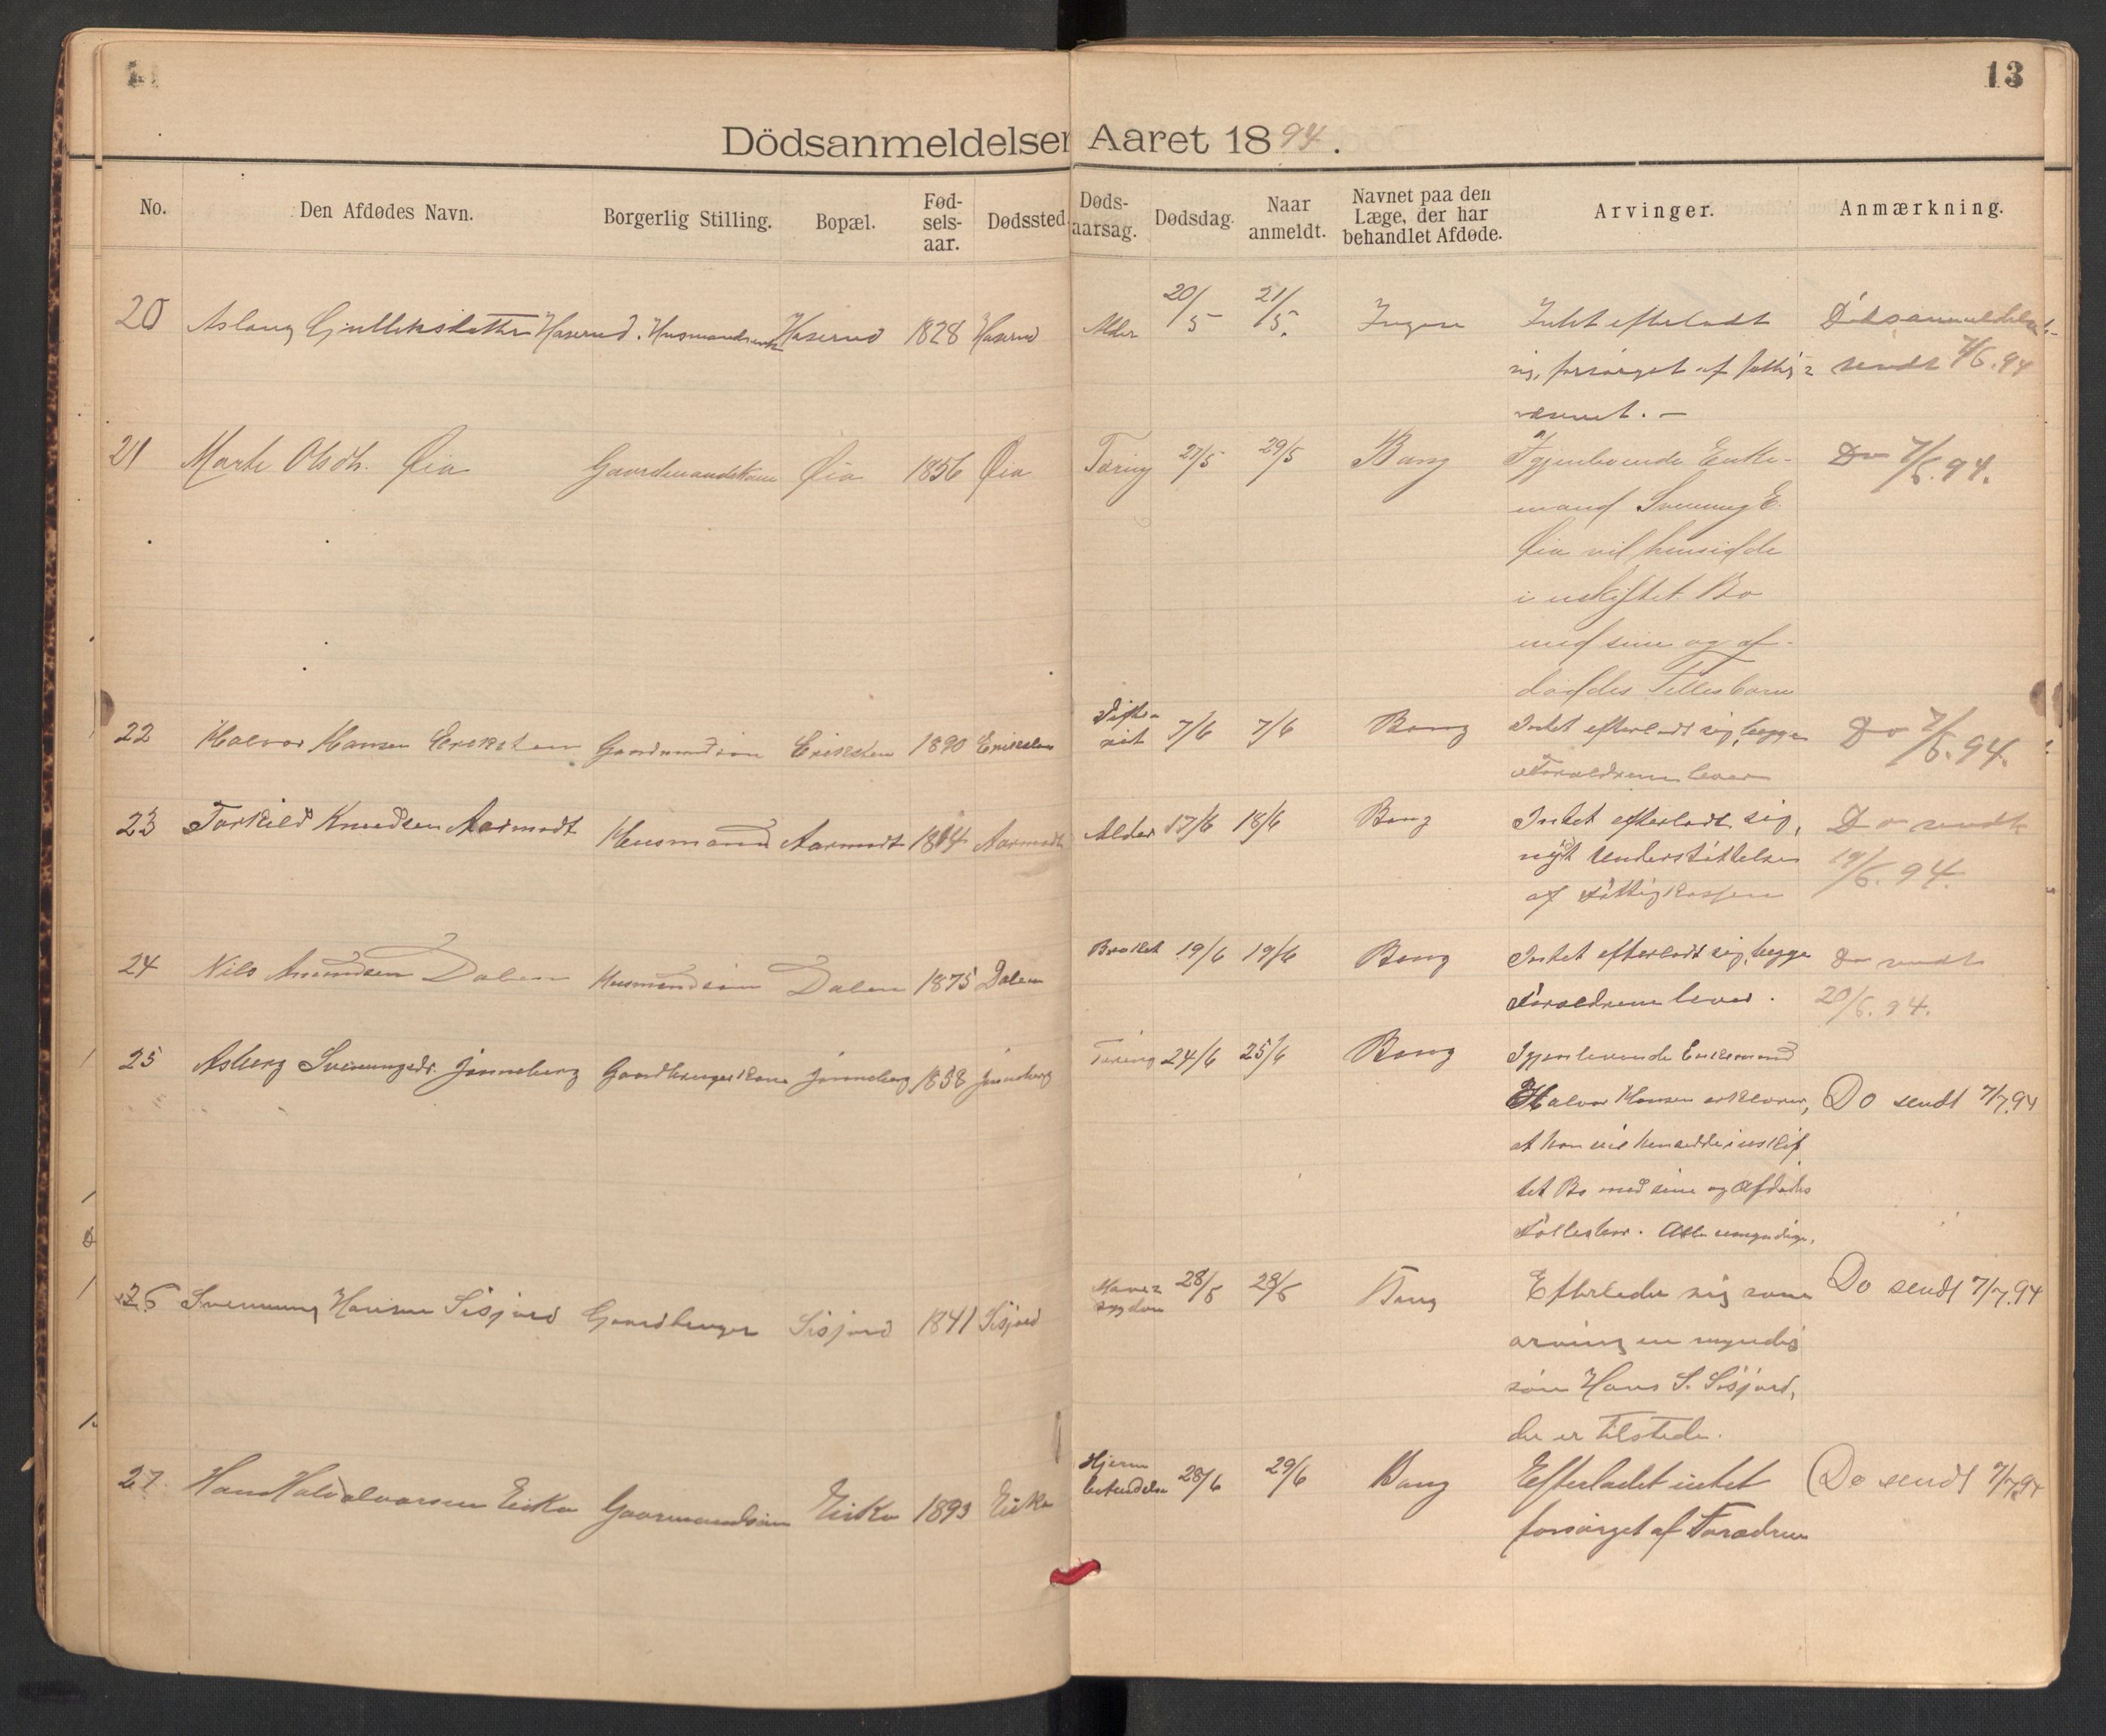 13
Dödsanmeldelser Aaret 1894.
No. Den Afdødes Navn. Borgerlig Stilling. Bopæl. Fød-sels-aar. Dødssted. Døds-aarsag. Dødsdag. Naar anmeldt. Navnet paa den Læge, der har behandlet Afdøde. Arvinger. Anmærkning.
20 Aslaug Gulleksdatter Haserud. Husmandsenke Haserud 1828 Haserud Alder 20/5 21/5. Ingen Intet efterladt
sig, forsørget af fattig-
væsenet. —
sendt 7/6.94
21 Marte Olsdtr. Øia Gaardmandskone Øia 1856 Øia Tæring 27/5 29/5 Bang Igjenlevende Enke- Do 7/6.94.
mand Svenung E.
Øia vil hensidde
i uskiftet Bo
med sine og af-
dødes Fellesbarn
22 Halvor Hansen Erikstein Gaardmandssøn Erikstein 1890 Erikstein Difte-rit 7/6 7/6 Bang Intet efterladt sig, begge Do 7/6.94.
Foreldrene lever
23 Torkild Knudsen Aarmodt Husmand Aarmodt 1814 Aarmodt Alder 17/6 18/6 Bang Intet efterladt sig, Do sendt
nydt Understøttelse 19/6.94.
af Fattigkassen
24 Nils Amundsen Dalen Husmandssøn Dalen 1875 Dalen Brokket 19/6 19/6 Bang Intet efterladt sig, begge Do sendt
Foreldrene lever. 20/6.94.
25 Asberg Svenungsdr. Jønneberg Gaardbrugerkone Jønneberg 1838 Jønneberg Tæring 24/6 25/6 Bang Igjenlevende Enkemand
Halvor Hansen erklærer, Do sendt 7/7.94
at han vil hensidde i uskif
tet Bo med sine og Afdødes
Fellesbar. Alle umyndige.
26 Svenung Hansen Sisjord Gaardbruger Sisjord 1841 Sisjord Mave-sygdom 28/6 28/6 Bang Efterlader sig som Do sendt 7/7.94
arving en myndig
søn Hans S. Sisjord,
der er tilstede.
27. Eika Gaarmandssøn Eika 1893 Eika Hjerne betendelse 28/6 29/6 Bang Efterladet intet Do sendt 7/7.94
forsørget af Forældrene